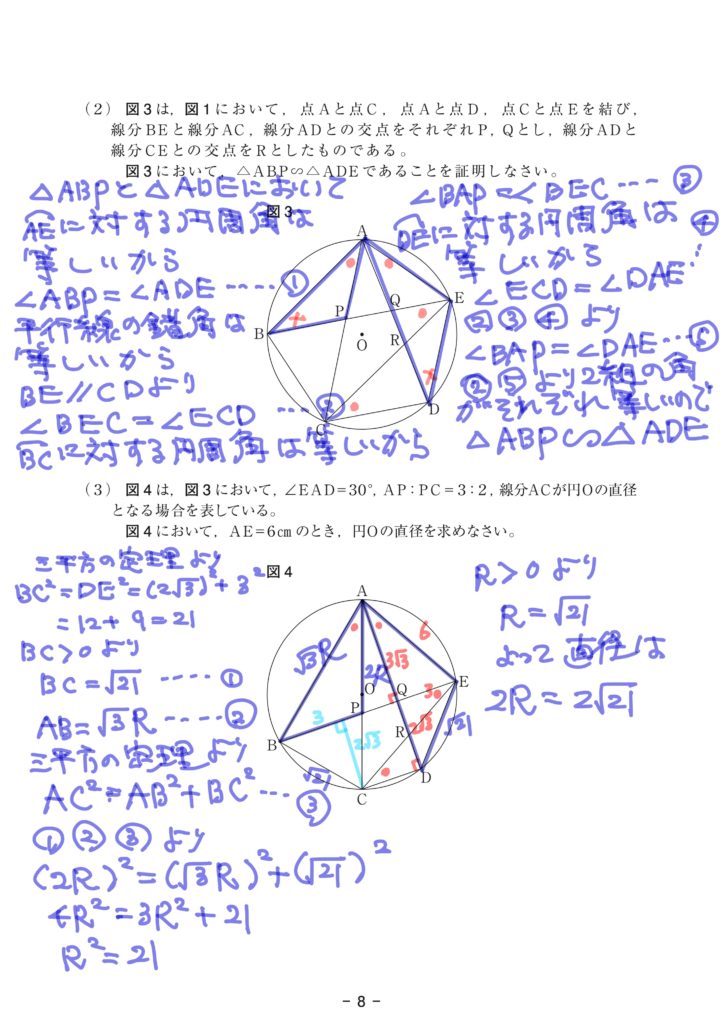 (2) 図3は，図1において，点Aと点C，点Aと点D，点Cと点Eを結び，
線分BEと線分AC，線分ADとの交点をそれぞれP，Qとし，線分ADと
線分CEとの交点をRとしたものである。
図3において，△ABP∽△ADEであることを証明しなさい。
△ABPと△ADEにおいて
AEに対する円周角は
等しいから
∠ABP=∠ADE ---- ①
平行線の錯角は
等しいから
BE//CDより
∠BEC=∠ECD --- ②
BCに対する円周角は等しいから
∠BAP=∠BEC ---- ③
DEに対する円周角は
等しいから
∠ECD=∠DAE … ④
②③④より
∠BAP=∠DAE --- ⑤
②⑤より2組の角
がそれぞれ等しいので
△ABP∽△ADE
図3
A
P
Q
E
B
O
R
D
C
×
×
(3) 図4は，図3において，∠EAD=30°，AP：PC=3：2，線分ACが円Oの直径
となる場合を表している。
図4において，AE=6cmのとき，円Oの直径を求めなさい。
三平方の定理より
BC²=DE²=(2√3)²+3²
=12+9=21
BC>0より
BC=√21 ---- ①
AB=√3R ---- ②
三平方の定理より
AC²=AB²+BC² --- ③
①②③より
(2R)²=(√3R)²+(√21)²
4R²=3R²+21
R²=21
R>0より
R=√21
よって直径は
2R=2√21
図4
A
6
√3R
2R
3√3
E
O
Q
3
P
3
R
2√3
√21
B
2√3
√21
D
C
- 8 -